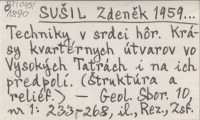 SUŠIL Zdeněk 1959...
Techniky v srdci hôr. Krá-
sy kvartérnych útvarov vo
Vysokých Tatrách i na ich
predpolí. (Štruktúra a
reliéf.) — Geol. Sbor. 10,
nr 1: 233-268, il., Rez., Zsf.